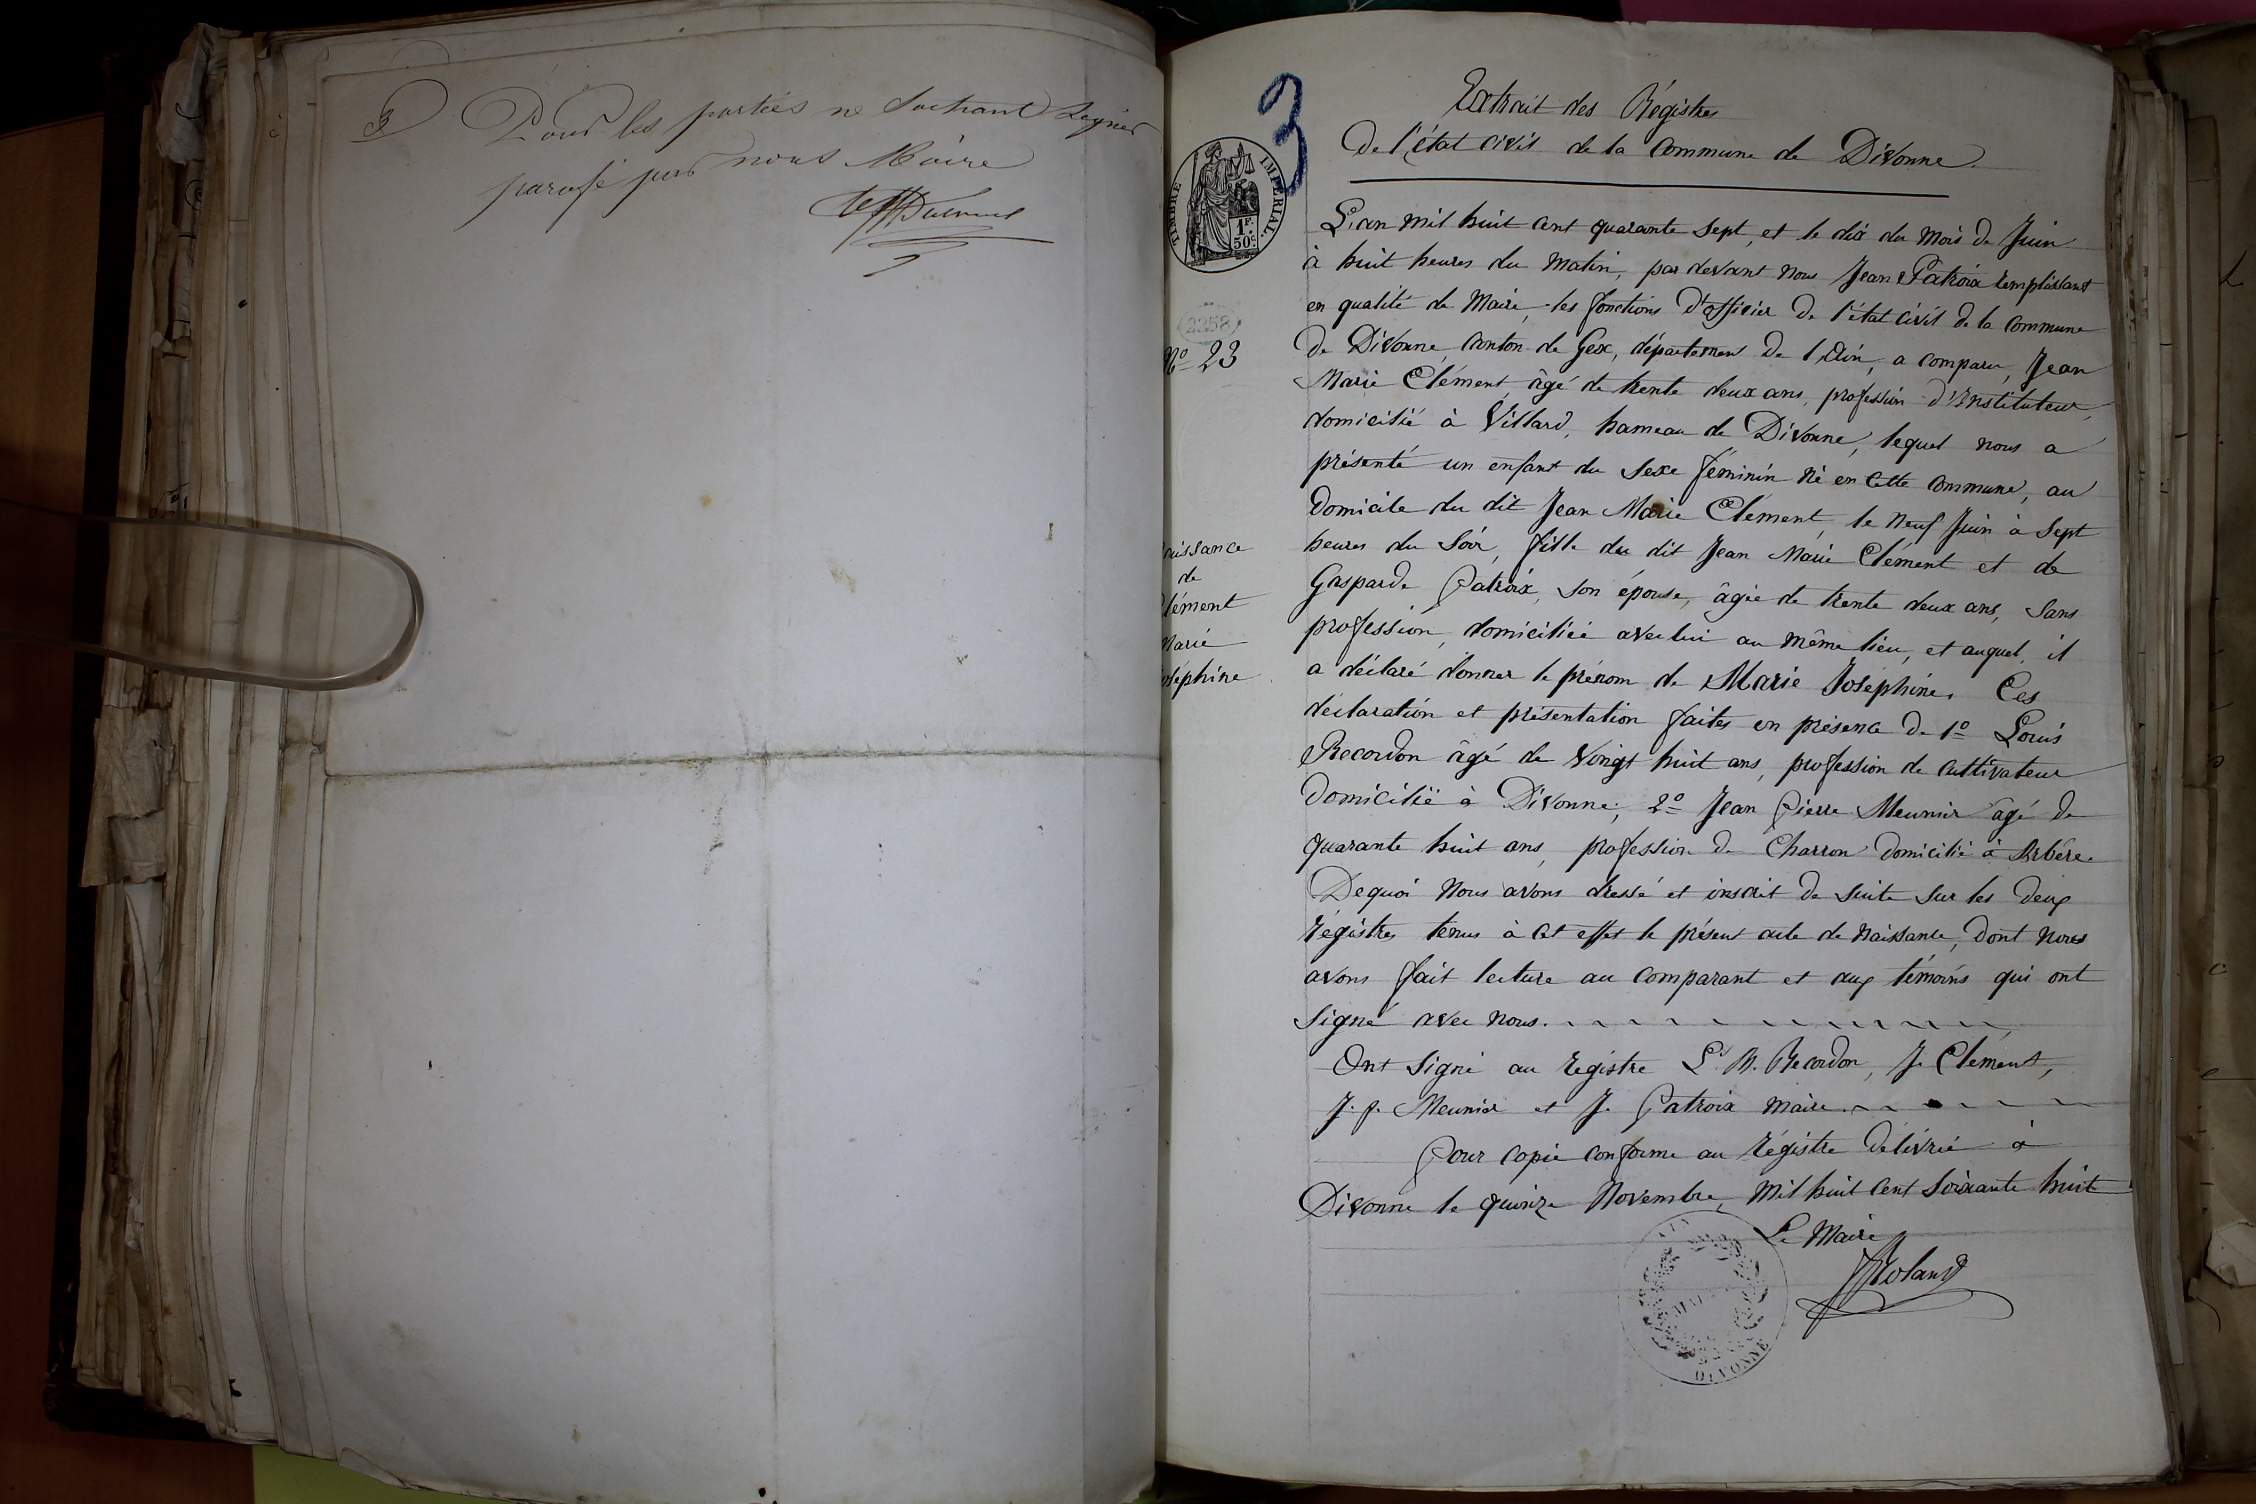 3 Pour les parties ne sachant signer
parafé par nous Maire
3
Extrait des Régistres
De l'état civil de la Commune de Divonne.
TIMBRE IMPERIAL.
1F.
50c
L'an mil huit cent quarante sept, et le dix du mois de Juin
à huit heures du matin, par devant nous Jean Patroix remplissant
en qualité de Maire, les fonctions d'officier de l'état civil de la commune
2258
No 23
de Divonne, canton de Gex, département de l'Ain, a comparu, Jean
Marie Clément âgé de trente deux ans, profession d'Instituteur,
domicilié à Villard, hameau de Divonne, lequel nous a
présenté un enfant du sexe féminin né en cette commune, au
domicile du dit Jean Marie Clément, le neuf Juin à sept
heures du soir, fille du dit Jean Marie Clément et de
Gasparde Patroix, son épouse, âgée de trente deux ans, sans
profession, domiciliée avec lui au même lieu, et auquel il
a déclaré donner le prénom de Marie Joséphine. Ces
aissance
de
lément
arie
séphine
déclaration et présentation faites en présence de 1o Louis
Recordon âgé de vingt huit ans, profession de cultivateur
domicilié à Divonne, 2o Jean Pierre Meunier âgé de
quarante huit ans, profession de Charron domicilié à Arbère.
De quoi nous avons dressé et inscrit de suite sur les deux
régistres tenus à cet effet le présent acte de naissance, dont nous
avons fait lecture au comparant et aux témoins qui ont
signé avec nous.
Ont signé au régistre Ls M. Recordon, J. Clément,
J. P. Meunier et J. Patroix maire.
Pour copie conforme au régistre délivrée à
Divonne le quinze Novembre, mil huit cent soixante huit
Le Maire
Roland
AIN
MAIRIE
DIVONNE